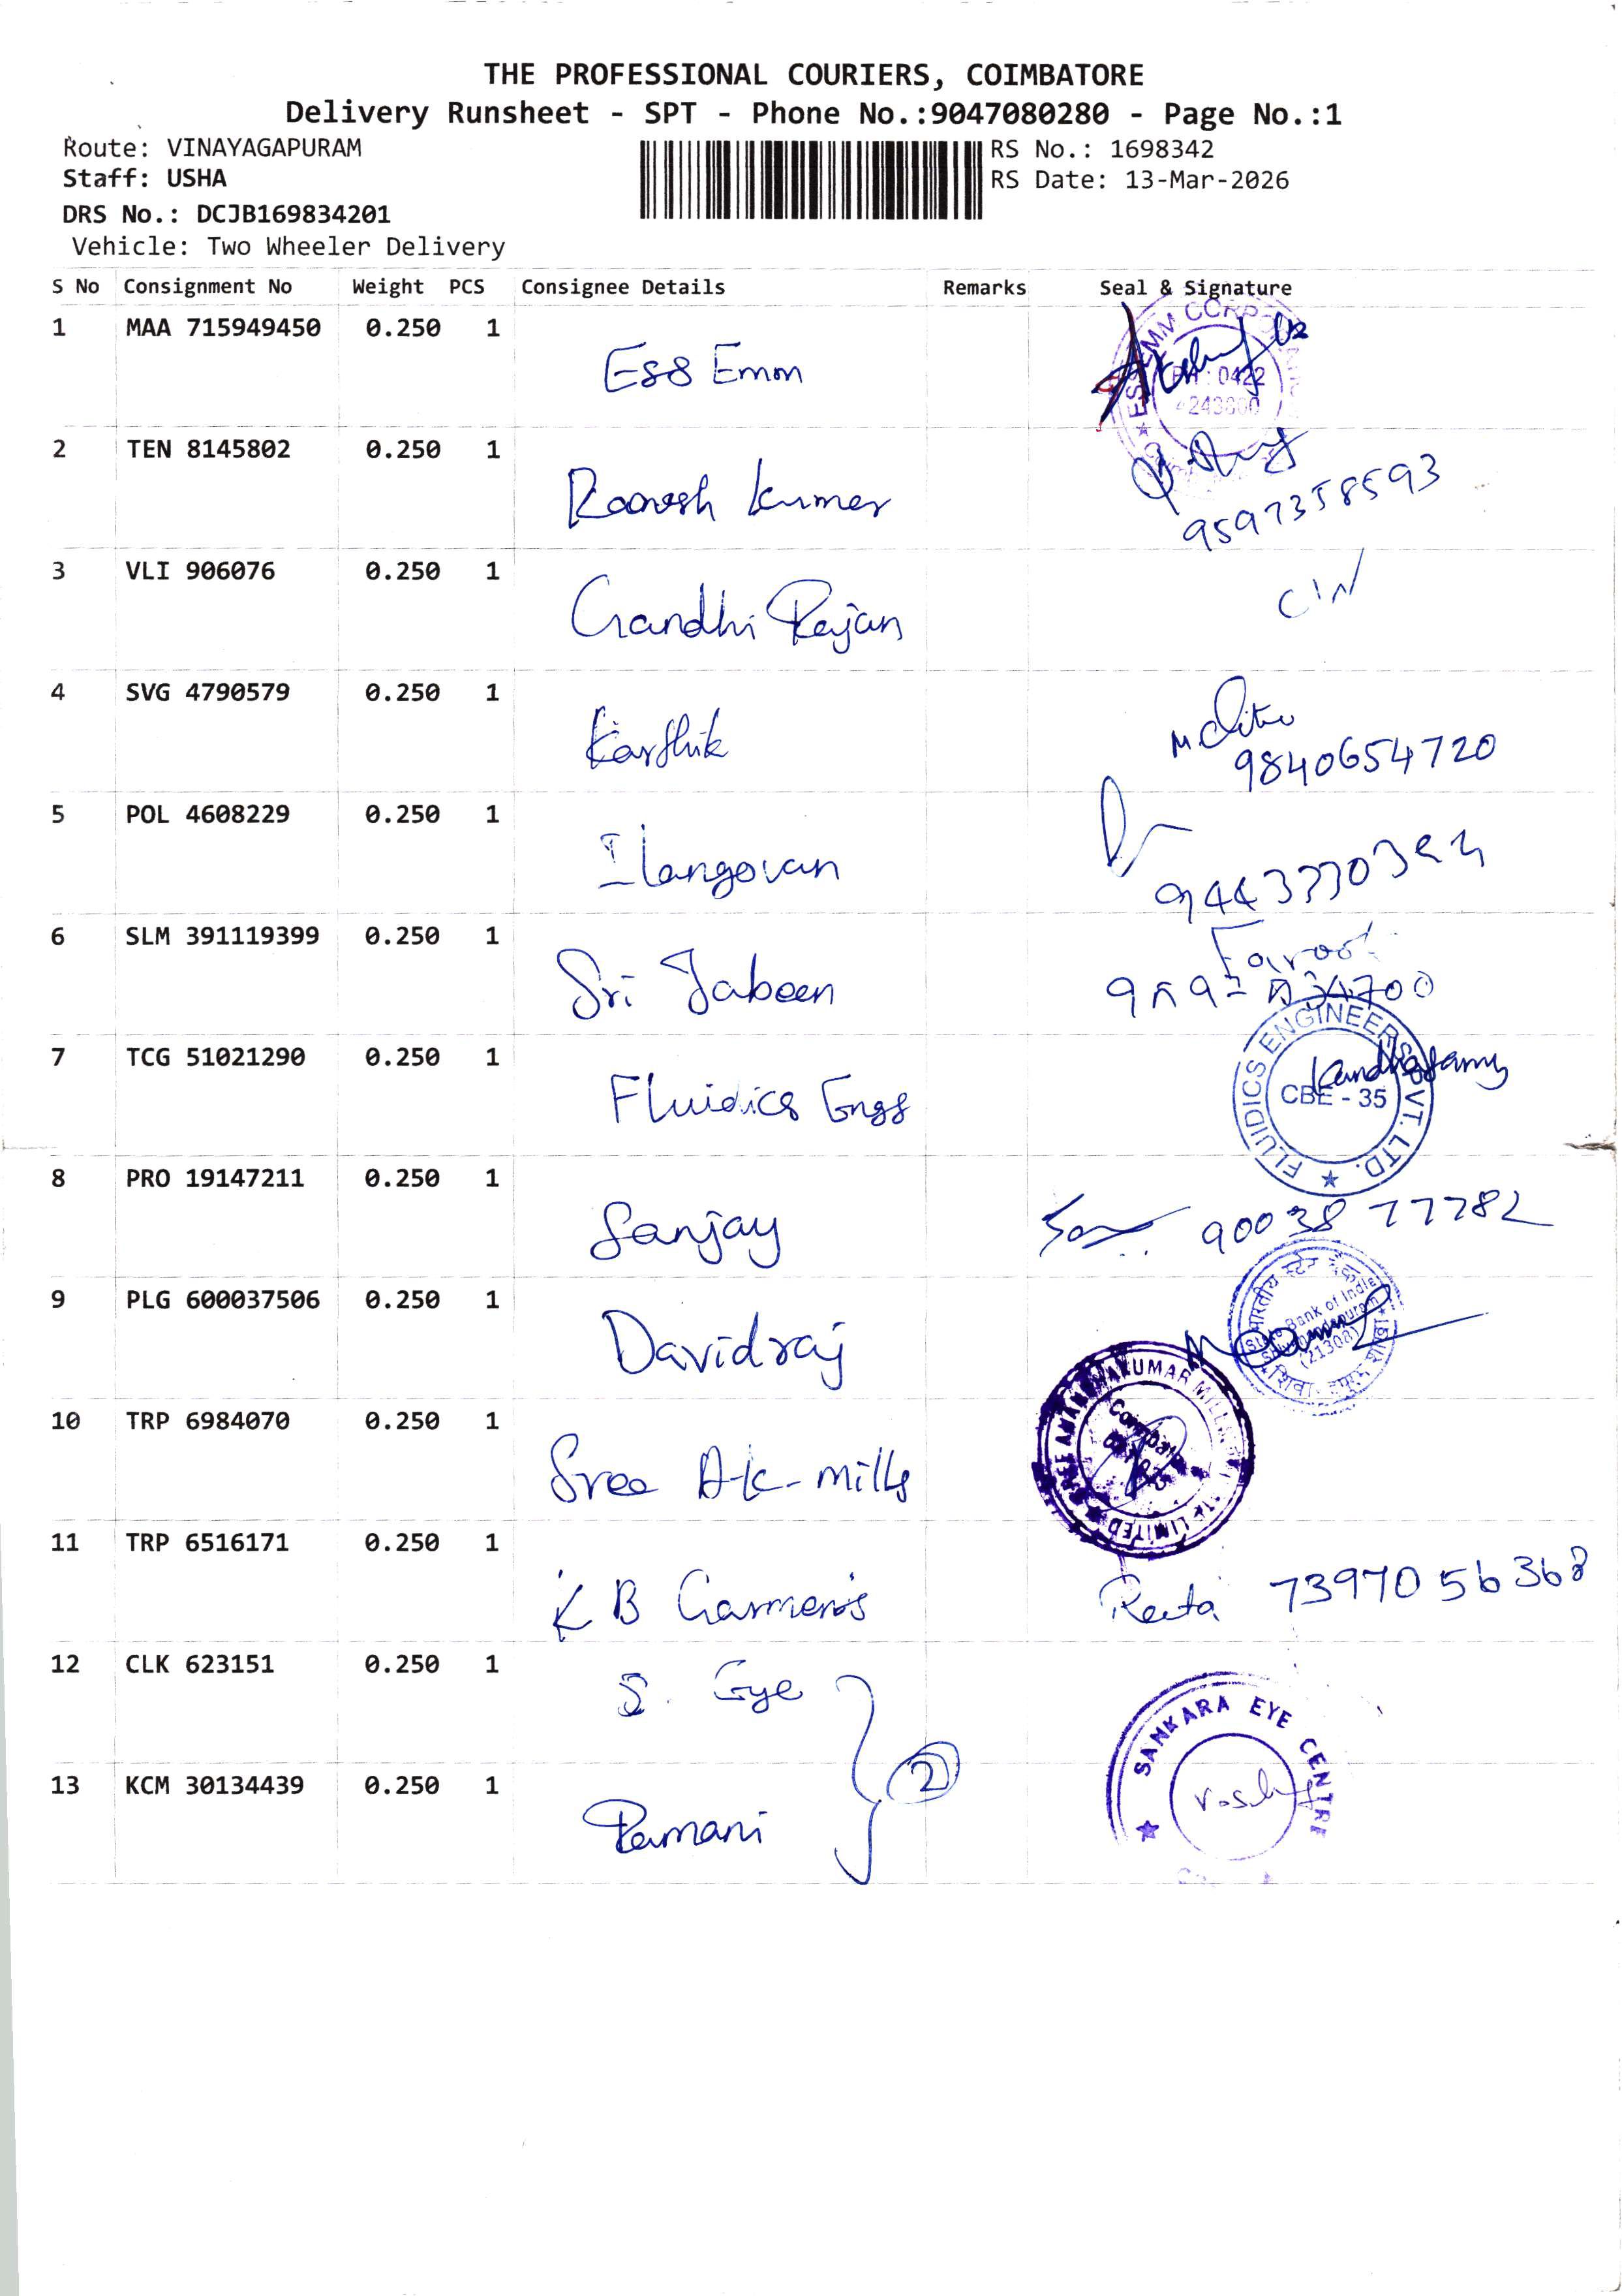 THE PROFESSIONAL COURIERS, COIMBATORE
Delivery Runsheet - SPT - Phone No.:9047080280 - Page No.:1
Route: VINAYAGAPURAM
RS No.: 1698342
Staff: USHA
RS Date: 13-Mar-2026
DRS No.: DCJB169834201
Vehicle: Two Wheeler Delivery
S No Consignment No Weight PCS Consignee Details Remarks Seal & Signature
1 MAA 715949450 0.250 1 Ess Emm
0422
2 TEN 8145802 0.250 1 Kumar
9597358593
3 VLI 906076 0.250 1 Gandhi Rajan
4 SVG 4790579 0.250 1 Karthik
9840654720
5 POL 4608229 0.250 1 Ilangovan
6 SLM 391119399 0.250 1 Sri Jabeen
7 TCG 51021290 0.250 1 Fluidics Engs
FLUIDICS ENGINEERS PVT. LTD. CBE - 35
Kandhasamy
8 PRO 19147211 0.250 1 Sanjay
90038 77782
9 PLG 600037506 0.250 1 Davidraj
भारतीय स्टेट बैंक
State Bank of India
(21308)
10 TRP 6984070 0.250 1 Sree A-k-mills
LIMITED
11 TRP 6516171 0.250 1 K B Garments
Reeta 7397056368
12 CLK 623151 0.250 1 S. Eye
SANKARA EYE CENTRE
13 KCM 30134439 0.250 1 Ramani
2